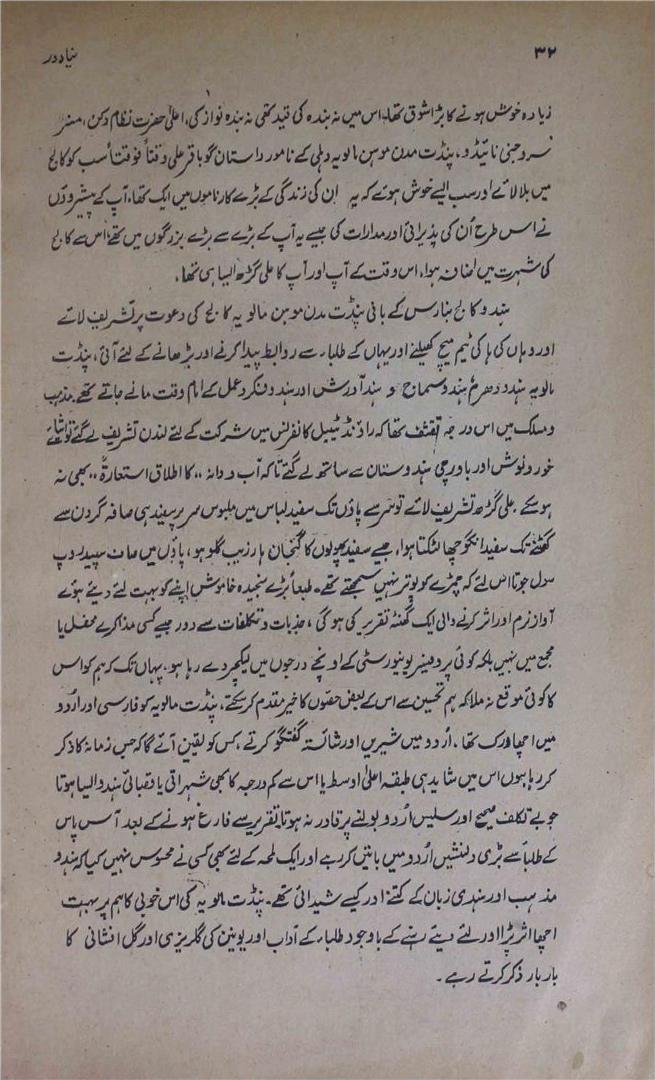 ۳۲
نیا دور
زیادہ خوش ہونے کا بڑا شوق تھا۔ اس میں نہ بندہ کی قید تھی نہ بندہ نواز کی، اعلیٰ حضرت نظام دکن، مسز
سروجنی نائیڈو، پنڈت مدن موہن مالویہ دہلی کے نامور داستان گو باقر علی وقتاً فوقتاً سب کو کالج
میں بلا لائے اور سب ایسے خوش ہوئے کہ یہ ان کی زندگی کے بڑے کارناموں میں ایک تھا، آپ کے پیشرووں
نے اس طرح اُن کی پذیرائی اور مدارات کی جیسے یہ آپ کے بڑے سے بڑے بزرگوں میں تھے، اس سے کالج
کی شہرت میں اضافہ ہوا، اس وقت کے آپ اور آپ کا علی گڑھ ایسا ہی تھا،
ہندو کالج بنارس کے بانی پنڈت مدن موہن مالویہ کالج کی دعوت پر تشریف لائے
اور وہاں کی ہاکی ٹیم میچ کھیلنے اور یہاں کے طلبار سے روابط پیدا کرنے اور بڑھانے کے لئے آئی، پنڈت
مالویہ ہندو دھرم ہندو سماج و ہند آورش اور ہندو فکر و عمل کے امام وقت مانے جاتے تھے۔ مذہب
و مسلک میں اس درجہ تقشف تھا کہ راونڈ ٹیبل کانفرنس میں شرکت کے لئے لندن تشریف لے گئے تو اشیائے
خور و نوش اور باورچی ہندوستان سے ساتھ لے گئے تاکہ آب و دانہ ،، کا اطلاق استعارۃً ،، بھی نہ
ہو سکے۔ علی گڑھ تشریف لائے تو سر سے پاؤں تک سفید لباس میں ملبوس سر پر سپید ہی صافہ گردن سے
گھٹنے تک سفید انگوچھا لٹکتا ہوا، جیسے سفید پھولوں کا گنجان ہار زیب گلو ہو، پاؤں میں صاف سپید روپ
سول جوتا اس لئے کہ چمڑے کو پوتر نہیں سمجھتے تھے۔ طبعاً بڑے سنجیدہ خاموش اپنے کو بہت لئے دیئے ہوئے
آواز نرم اور اثر کرنے والی ایک گھنٹہ تقریر کی ہوگی، جذبات و تکلفات سے دور جیسے کسی مذاکرے محفل یا
مجمع میں نہیں بلکہ کوئی پروفیسر یونیورسٹی کے اونچے درجوں میں لیکچر دے رہا ہو، یہاں تک کہ ہم کو اس
کا کوئی موقع نہ ملا کہ ہم تحسین سے اس کے بعض حصّوں کا خیر مقدم کر سکتے، پنڈت مالویہ کو فارسی اور اُردو
میں اچھا ورک تھا، اُردو میں شیریں اور شائستہ گفتگو کرتے، کس کو یقین آئے گا کہ جس زمانہ کا ذکر
کر رہا ہوں اس میں شاید ہی طبقہ اعلیٰ اوسط یا اس سے کم درجہ کا بھی شہراتی یا قصباتی ہندو ایسا ہوتا
جو بے تکلف صحیح اور سلیس اُردو بولنے پر قادر نہ ہوتا، تقریر سے فارغ ہونے کے بعد آس پاس
کے طلبأ سے بڑی دلنشیں اُردو میں باتیں کر رہے اور ایک لمحہ کے لئے بھی کسی نے محسوس نہیں کیا کہ ہندو
مذہب اور ہندی زبان کے کتنے اور کیسے شیدائی تھے۔ پنڈت مالویہ کی اس خوبی کا ہم پر بہت
اچھا اثر پڑا اور لئے دیئے رہنے کے باوجود طلباء کے آداب اور یونین کی گلریزی اور گل افشانی کا
بار بار ذکر کرتے رہے۔